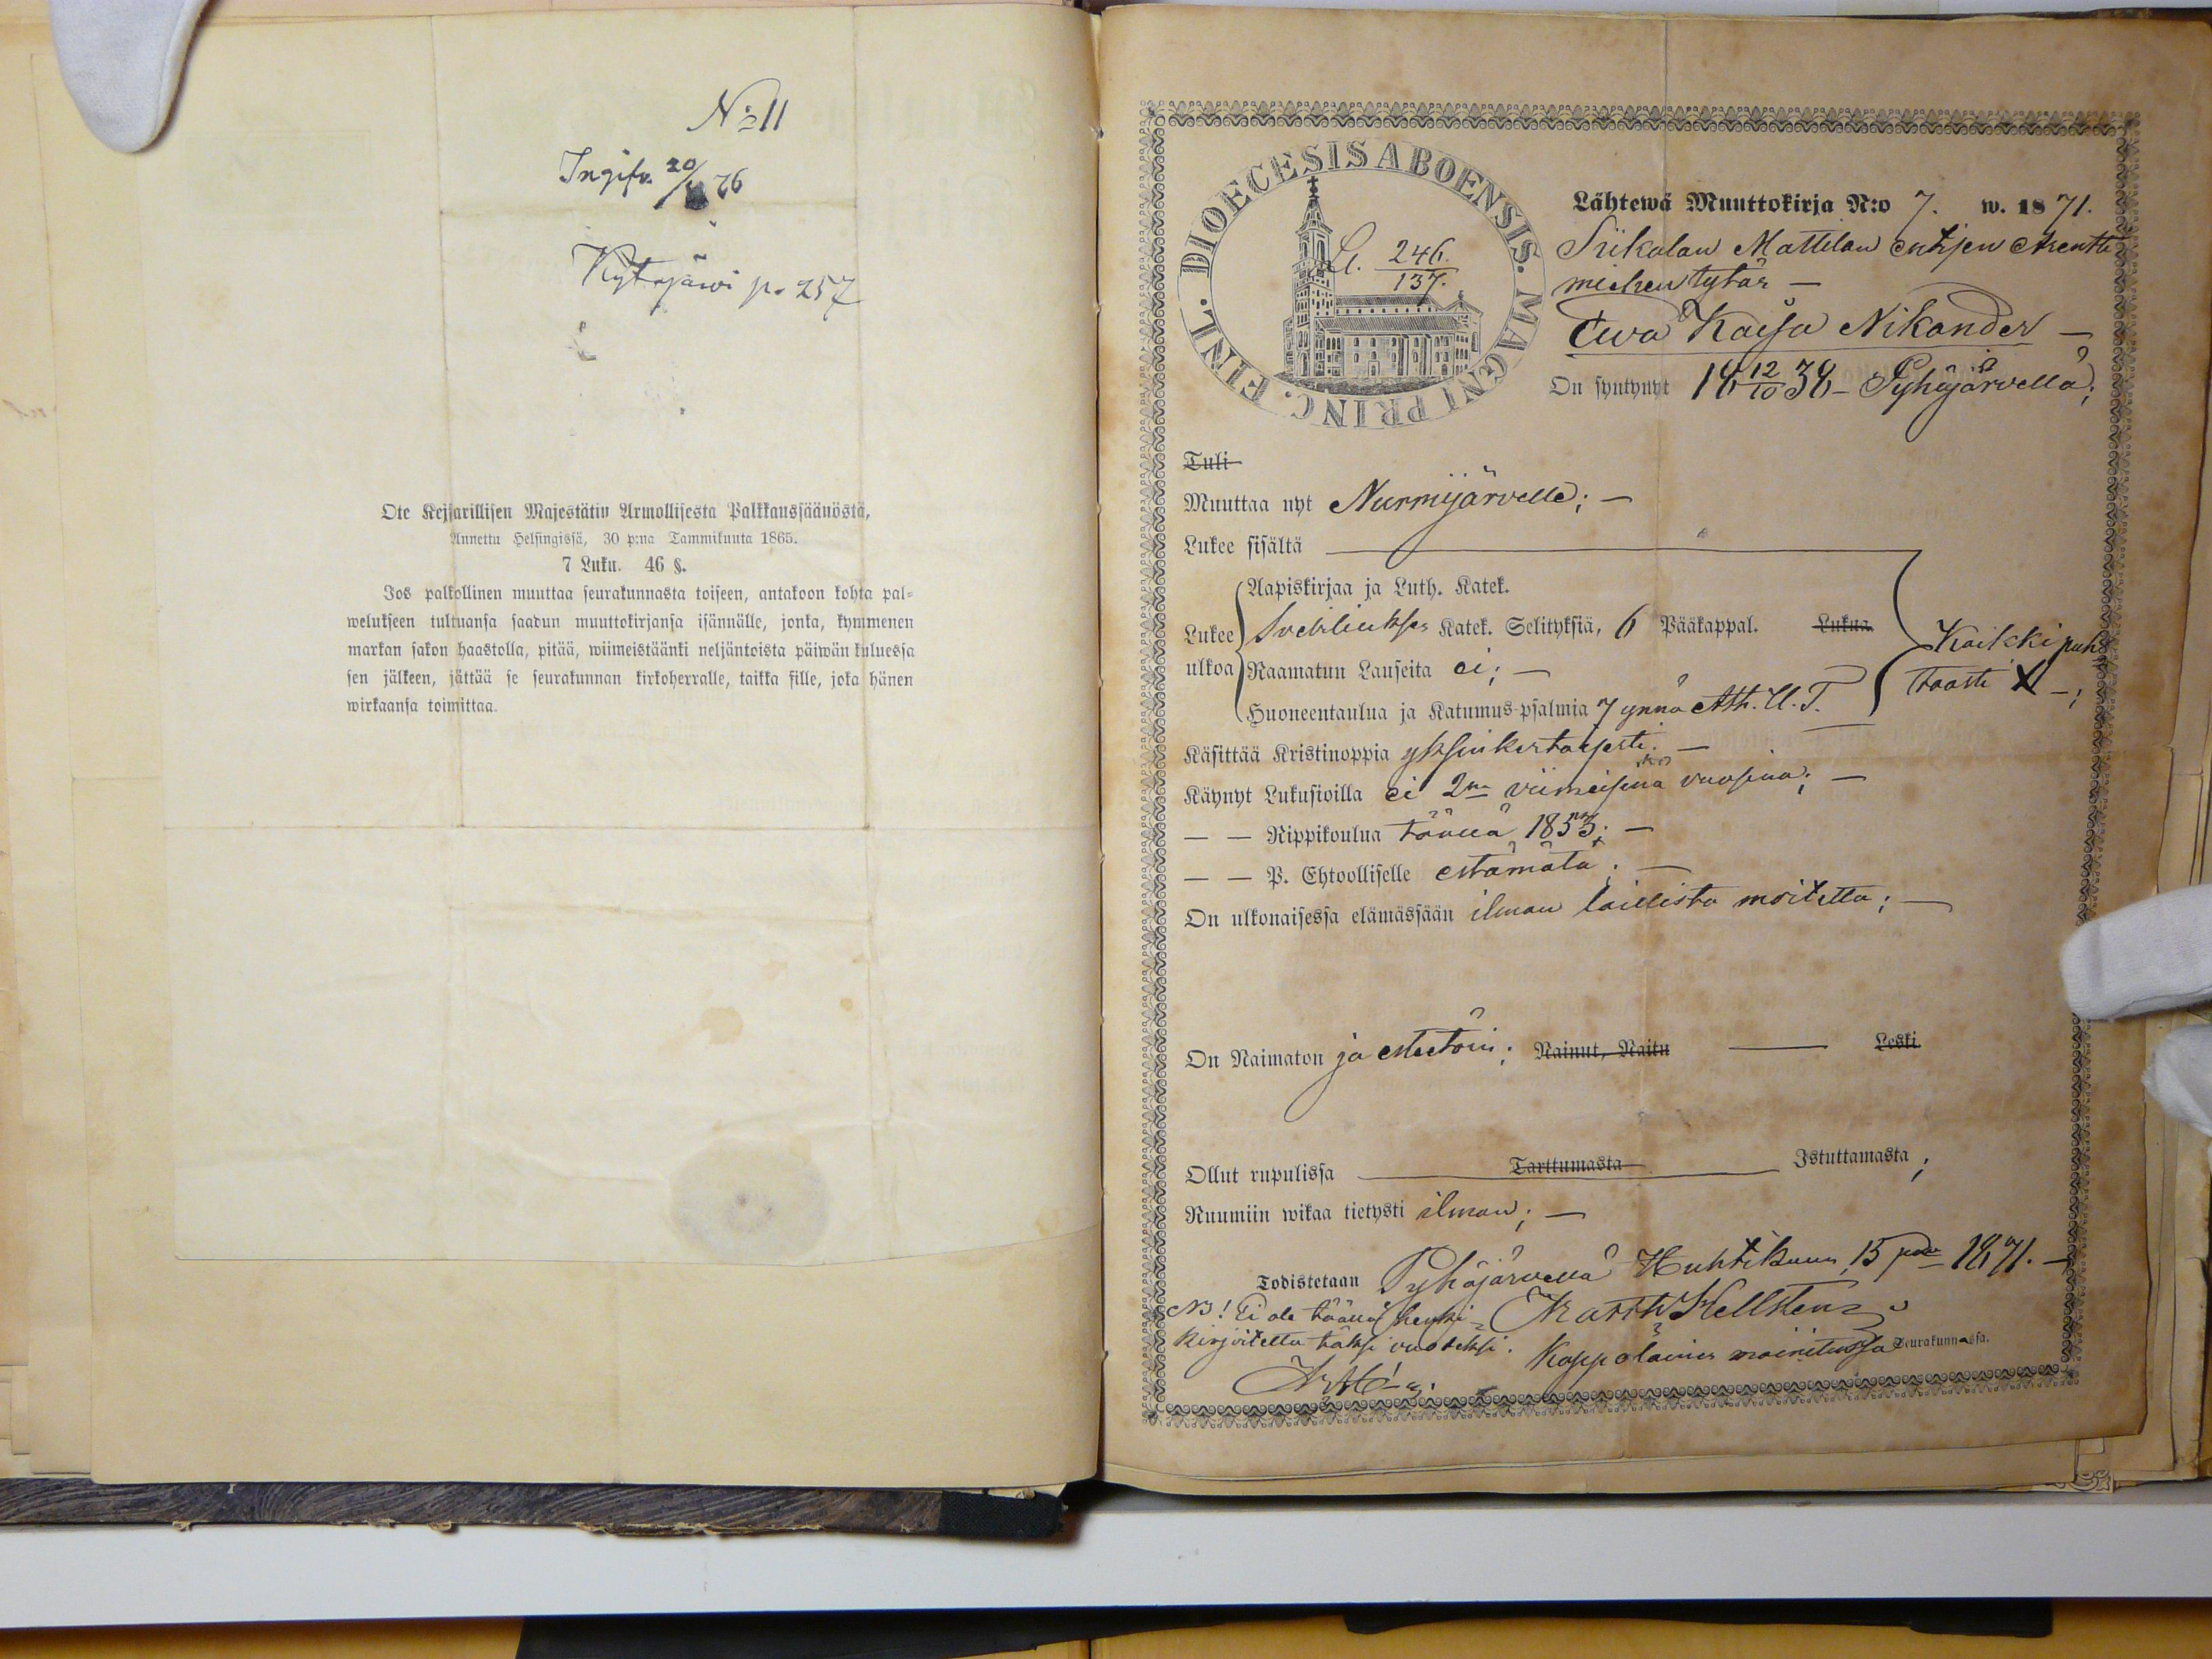 No 11
Ingifv. 20/ 76
Kytäjärvi p. 257
Ote Kejsarillisen Majestätin Armollisesta Palkkaussäänöstä,
Annettu Helsingissä, 30 p:nä Tammikuuta 1865.
7 Luku. 46 §.
Jos palkollinen muuttaa seurakunnasta toiseen, antakoon kohta pal=
welukseen tultuansa saadun muuttokirjansa isännälle, jonka, kymmenen
markan sakon haastolla, pitää, wiimeistäänki neljäntoista päiwän kuluessa
sen jälkeen, jättää se seurakunnan kirkoherralle, taikka sille, joka hänen
wirkaansa toimittaa.
DIOECESIS ABOENSIS. MAGNI PRINC. FINL.
246.
137.
Lähtewä Muuttokirja N:o 7. w. 1871.
Siikalan Mattilan entisen Arentti
miehen tytär —
Ewa Kaisa Nikander —
On syntynyt 18 12/10 38 – Pyhäjärvellä;
Tuli
Muuttaa nyt Nurmijärvelle; —
Lukee sisältä
Aapiskirjaa ja Luth. Katek.
Lukee ulkoa Svebiliuksen Katek. Selityksiä, 6 Pääkappal. Lukua
Raamatun Lauseita ei; —
Huoneentaulua ja Katumus-psalmia 7 ynnä Ath. U. T.
Kaikki puh
taasti X —;
Käsittää Kristinoppia yksinkertaisesti. —
Käynyt Lukusioilla ei 2na viimeisinä vuosina; —
— — Rippikoulua täällä 1853; —
— — P. Ehtoolliselle estämätä; —
On ulkonaisessa elämässään ilman laillista moitetta; —
On Naimaton ja esteetöin; Nainut, Naitu — Leski
Ollut rupulissa Tarttumasta Istuttamasta;
Ruumiin wikaa tietysti ilman; —
Todistetaan Pyhäjärvellä Huhtikuun 15 pnä 1871. —
NB! Ei ole täällä henki- Hellsten
kirjoitettu täksi vuodeksi. Kappalainen mainitussa Seurakunnassa.